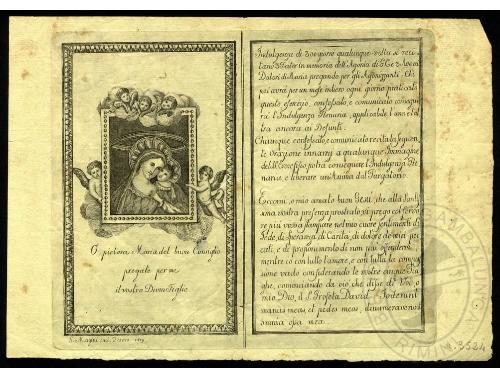 O pietosa Maria del buon Consiglio
pregate per me
il vostro Divin Figlio
Indulgenza di 300 giorni qualunque volta si reci
tano 3 Pater in memoria dell'Agonia di G.C. e 3 Ave ai
Dolori di Maria pregando per gli Agonizzanti. Chi
poi avrà per un mese intiero ogni giorno praticato
questo esercizio, confessato, e comunicato consegui
rà l'Indulgenza Plenaria, applicabile l'una e l'al
tra ancora ai Defunti.
Chiunque confessato, e comunicato recita la seguen
te Orazione innanzi a qualunque Immagine
del SS. Crocifisso potrà conseguire l'Indulgenza Ple
naria, e liberare un'Anima dal Purgatorio.
Eccomi, o mio amato buon Gesù, che alla Santis
sima vostra presenza prostrato vi prego col fervo
re più vivo a stampare nel mio cuore sentimenti di
Fede, di Speranza, di Carità, di dolore de' miei pec
cati, e di proponimento di non più offendervi
mentre io con tutto l'amore, e con tutta la compas
sione vado considerando le vostre cinque Pia
ghe, cominciando da ciò che disse di Voi, o
mio Dio, il S. Profeta David. Foderunt
manus meas, et pedes meos, dinumeraverunt
omnia ossa mea.
3524